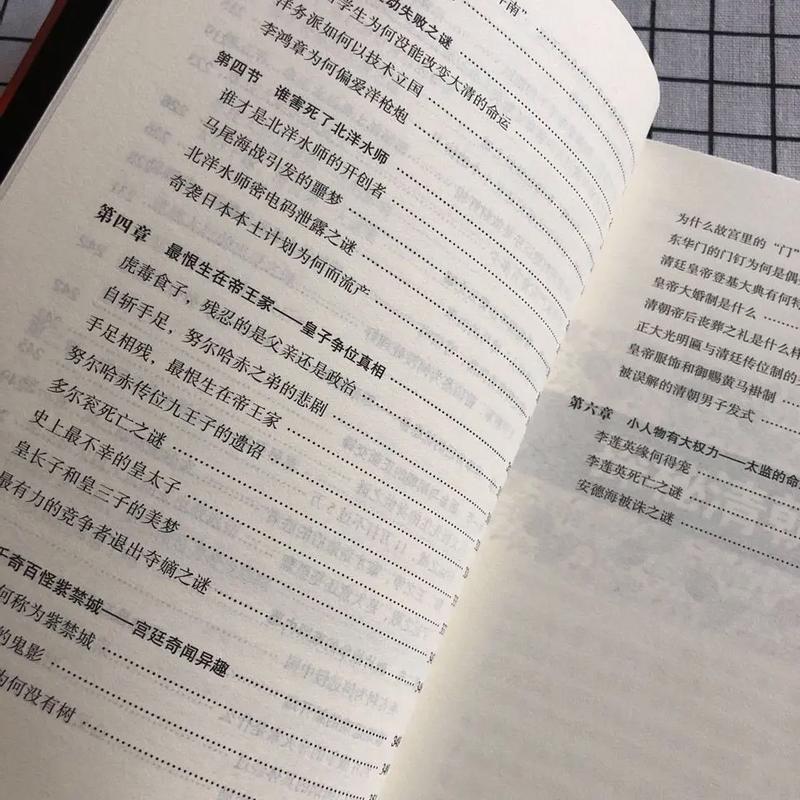 南”
动失败之谜
学生为何没能改变大清的命运
洋务派如何以技术立国
李鸿章为何偏爱洋枪炮
第四节 谁害死了北洋水师
谁才是北洋水师的开创者
马尾海战引发的噩梦
北洋水师密电码泄露之谜
奇袭日本本土计划为何而流产
第四章 最恨生在帝王家——皇子争位真相
虎毒食子，残忍的是父亲还是政治
自斩手足，努尔哈赤之弟的悲剧
手足相残，最恨生在帝王家
努尔哈赤传位九王子的遗诏
多尔衮死亡之谜
史上最不幸的皇太子
皇长子和皇三子的美梦
最有力的竞争者退出夺嫡之谜
千奇百怪紫禁城——宫廷奇闻异趣
何称为紫禁城
的鬼影
为何没有树
为什么故宫里的“门”
东华门的门钉为何是偶
清廷皇帝登基大典有何特
皇帝大婚制是什么
清朝帝后丧葬之礼是什么样
正大光明匾与清廷传位制的
皇帝服饰和御赐黄马褂制
被误解的清朝男子发式
第六章 小人物有大权力——太监的命
李莲英缘何得宠
李莲英死亡之谜
安德海被诛之谜